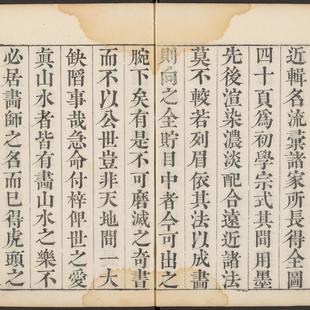 近輯名流彙諸家所長得全圖
四十頁爲初學宗式其間用墨
先後渲染濃淡配合遠近諸法
莫不較若列眉依其法以成畫
則向之全貯目中者今可出之
腕下矣有是不可磨滅之奇書
而不以公世豈非天地間一大
缺陷事哉急命付梓俾世之愛
眞山水者皆有畫山水之樂不
必居畫師之名而已得虎頭之